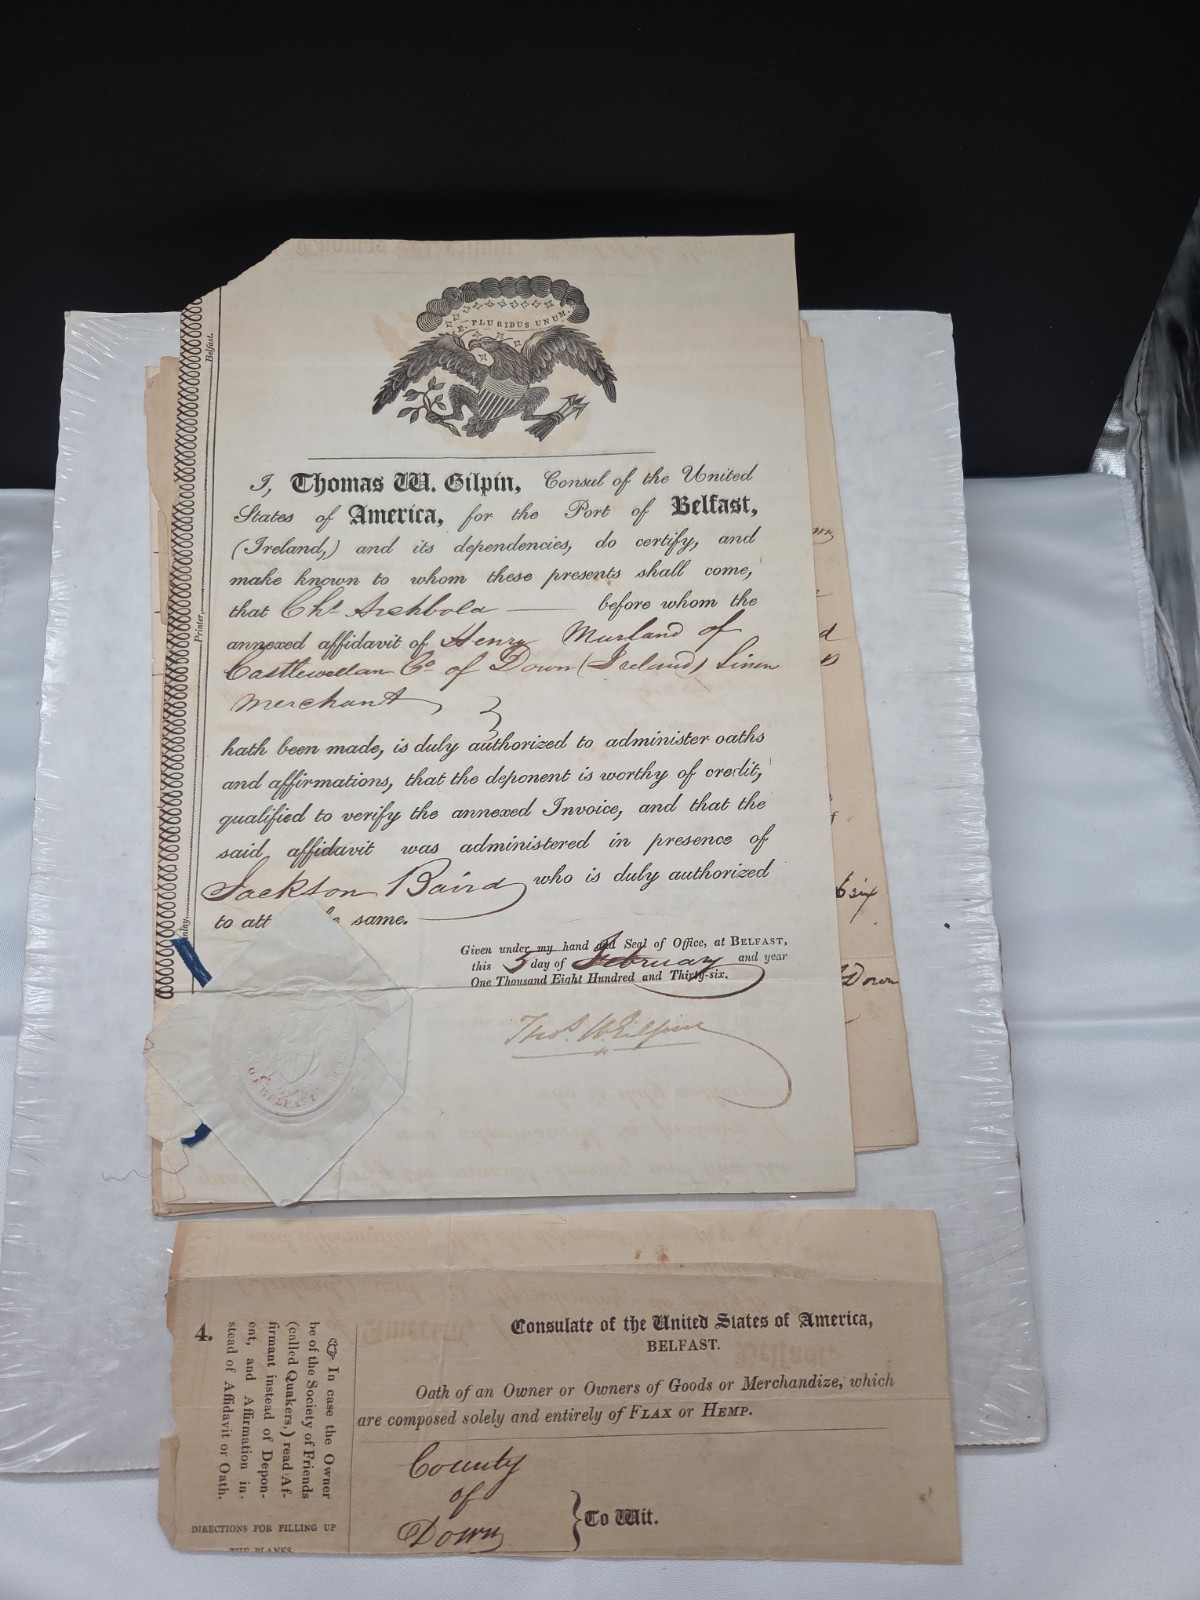 E. PLURIBUS UNUM.
Belfast.
Printer,
I, Thomas W. Gilpin, Consul of the United
States of America, for the Port of Belfast,
(Ireland,) and its dependencies, do certify, and
make known to whom these presents shall come,
that Chs Archbold before whom the
annexed affidavit of Henry Murland of
Castlewellan Co of Down (Ireland) Linen
Merchant,
hath been made, is duly authorized to administer oaths
and affirmations, that the deponent is worthy of credit,
qualified to verify the annexed Invoice, and that the
said affidavit was administered in presence of
Jackson Baird who is duly authorized
to att same.
Given under my hand and Seal of Office, at BELFAST,
this 5 day of February and year
One Thousand Eight Hundred and Thirty-six.
Thos. W. Gilpin
OF BELFAST
six
Down
4.
☞ In case the Owner
be of the Society of Friends
(called Quakers,) read Af-
firmant instead of Depon-
ent, and Affirmation in-
stead of Affidavit or Oath.
DIRECTIONS FOR FILLING UP
THE BLANKS
Consulate of the United States of America,
BELFAST.
Oath of an Owner or Owners of Goods or Merchandize, which
are composed solely and entirely of FLAX or HEMP.
County
of
Down
} To Wit.